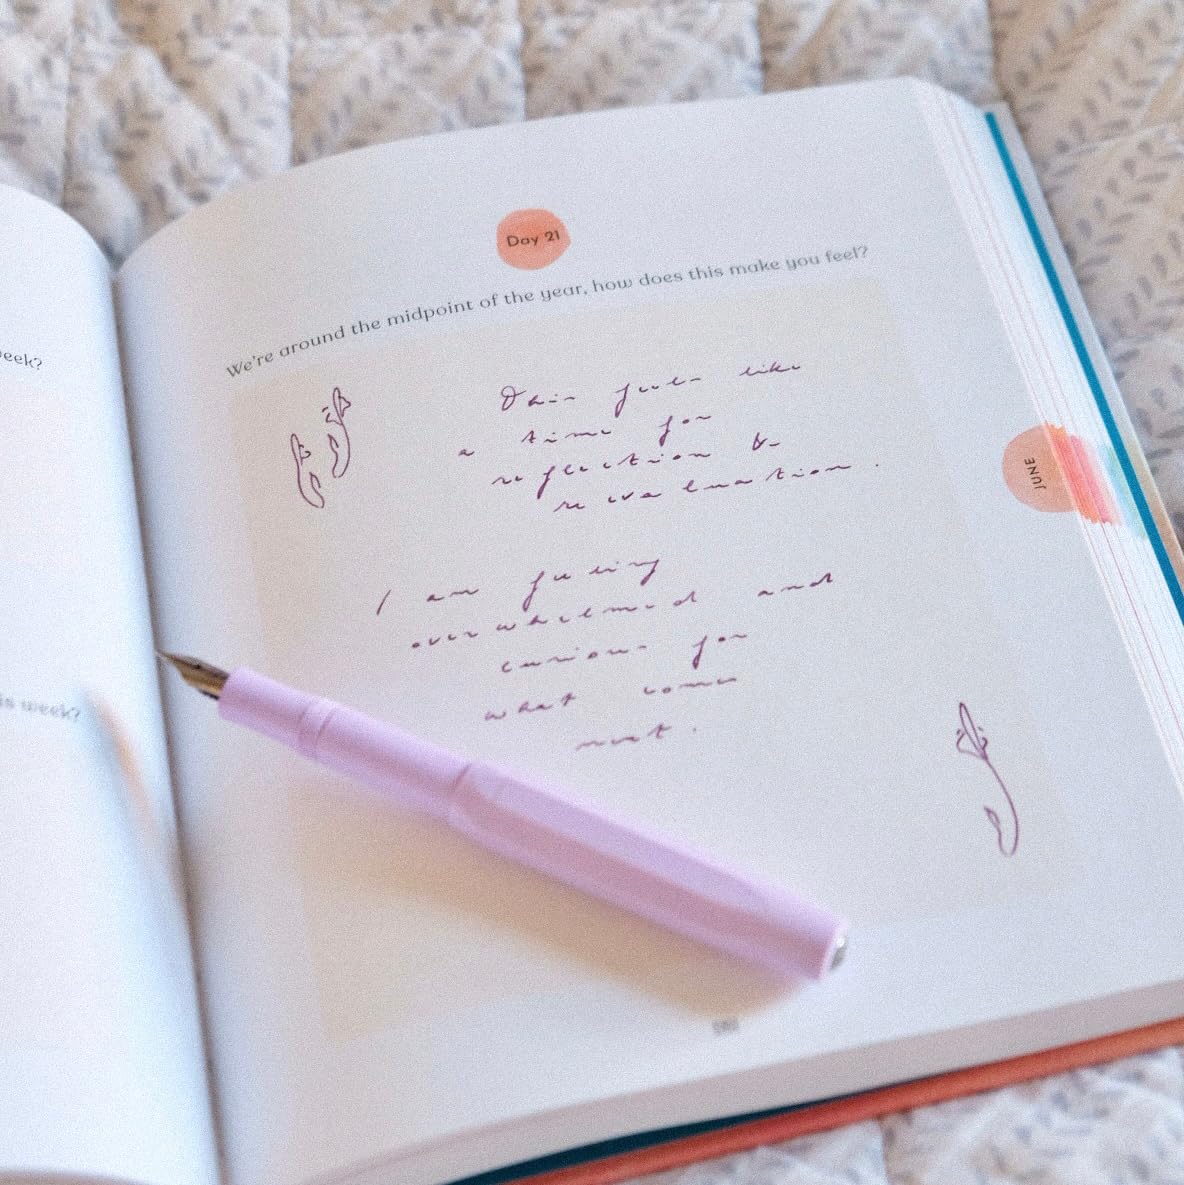 Day 21
We're around the midpoint of the year, how does this make you feel?
feels like
a time for
reflection &
re evaluation.
I am feeling
overwhelmed and
curious for
what comes
next.
JUNE
week?
is week?